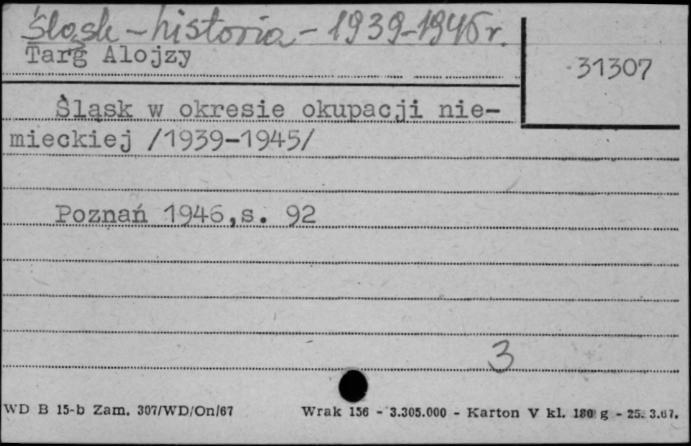 Śląsk - historia - 1939-1945 r.
Targ Alojzy
31307
Śląsk w okresie okupacji nie-
mieckiej /1939-1945/
Poznań 1946,s. 92
3
WD B 15-b Zam. 307/WD/On/67 Wrak 156 - 3.305.000 - Karton V kl. 180 g - 25. 3.67.